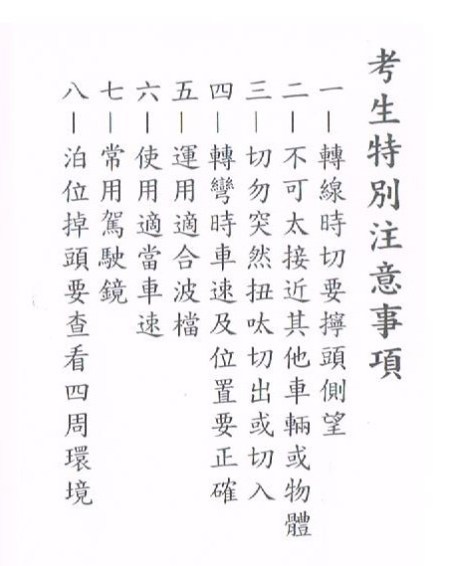 考生特別注意事項
一－轉線時切要擰頭側望
二－不可太接近其他車輛或物體
三－切勿突然扭呔切出或切入
四－轉彎時車速及位置要正確
五－運用適合波檔
六－使用適當車速
七－常用駕駛鏡
八－泊位掉頭要查看四周環境